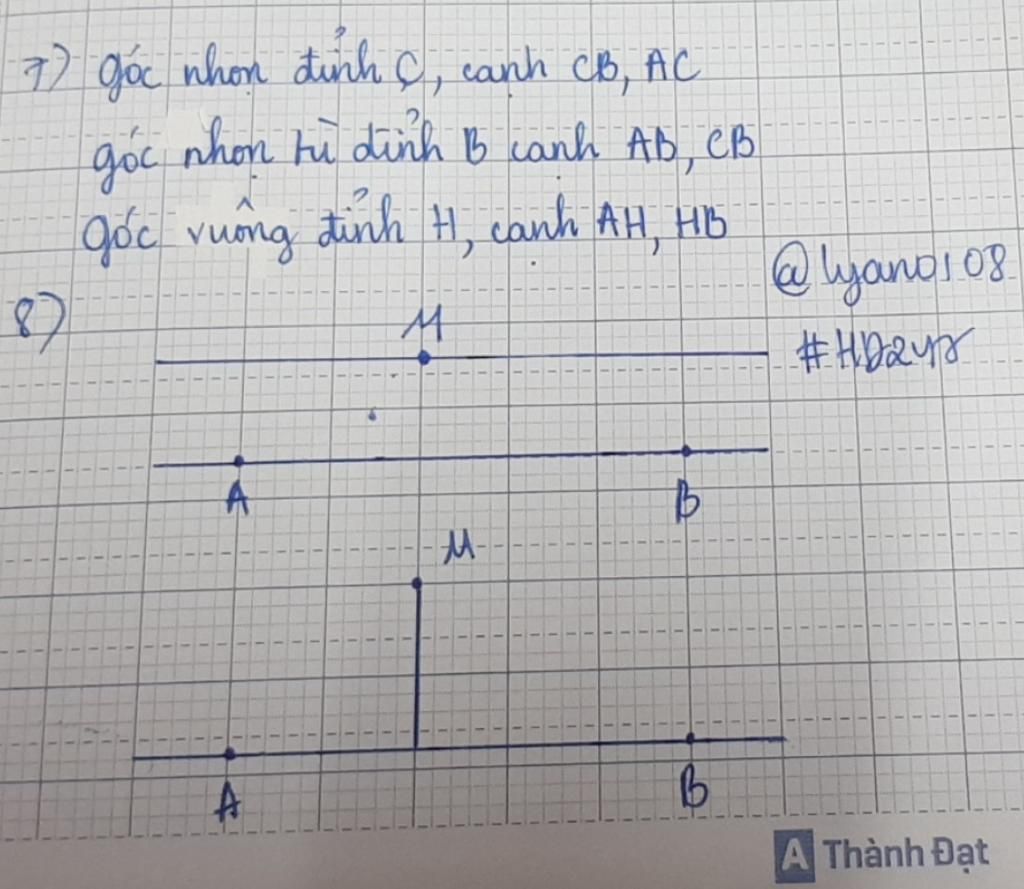 7) góc nhọn đỉnh C, cạnh CB, AC
góc nhọn tù đỉnh B cạnh AB, CB
góc vuông đỉnh H, cạnh AH, HB
@lyano108
8)
M
#HD247
A
B
M
A
B
A Thành Đạt